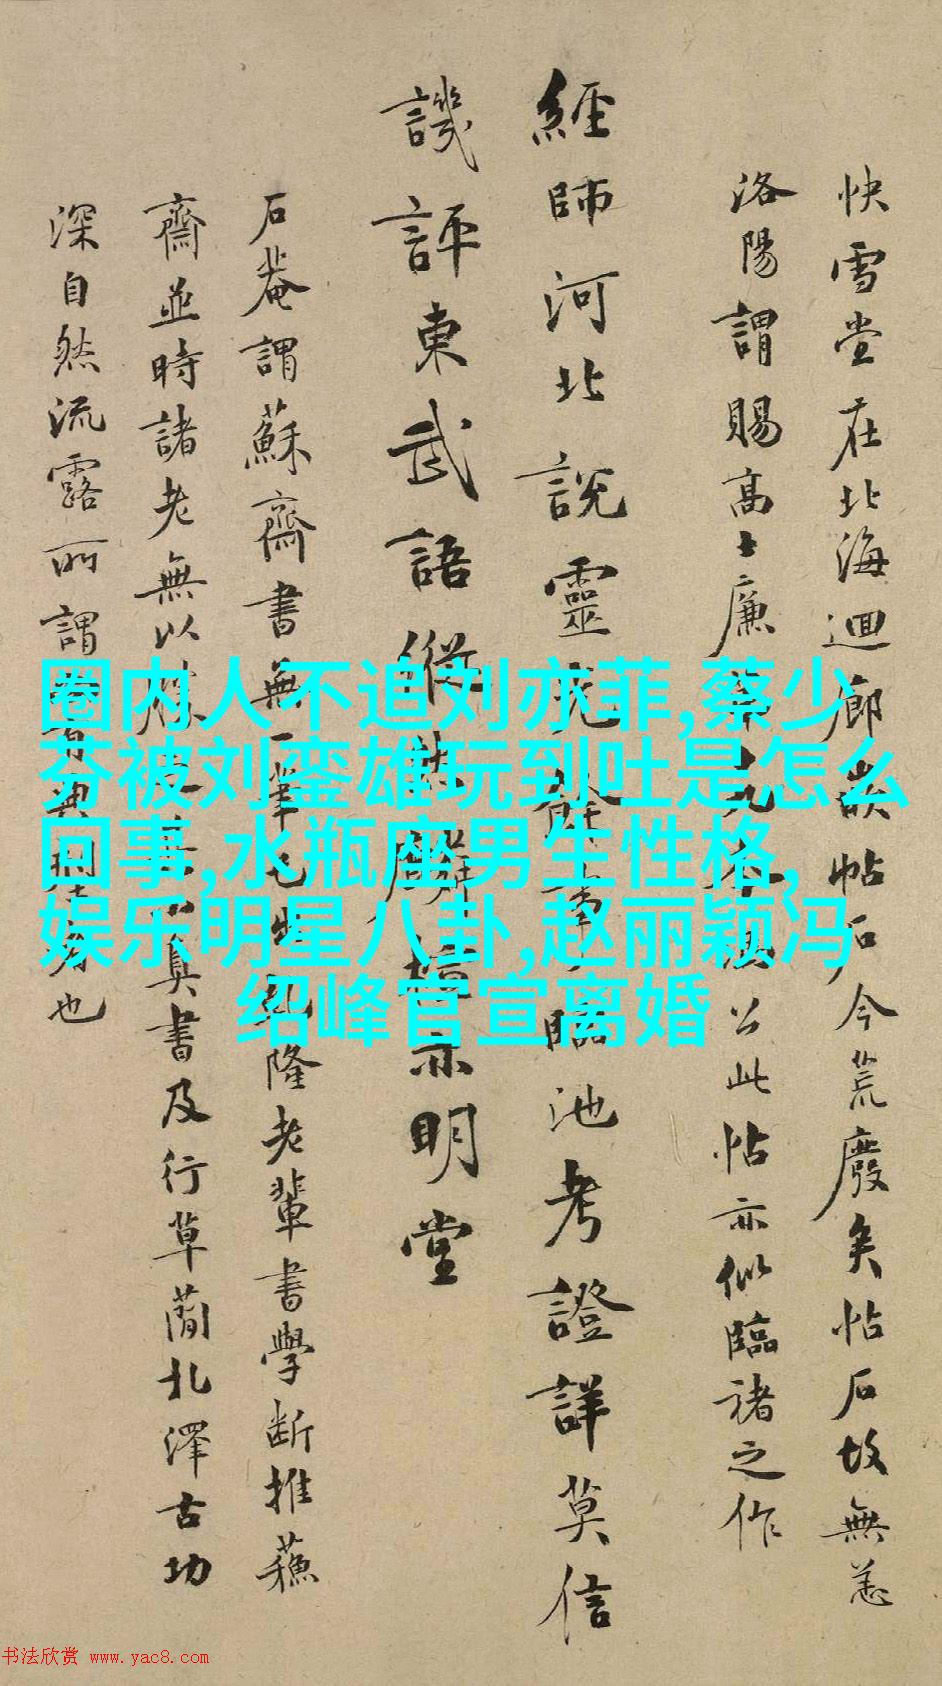 快雪堂在北海迴廊嵌帖石今荒廢矣帖石故無恙
洛陽謂賜高士廉公此帖亦似臨褚之作
經師河北說靈飛餘事臨池考證詳莫信
譏評東武語亦明堂
石菴謂蘇齋書無一筆是乾隆老輩書學斷推蘓
齋並時諸老無以真書及行草蘭北澤古功
深自然流露所謂也
圈内人不追刘亦菲,蔡少
芬被刘銮雄玩到吐是怎么
回事,水瓶座男生性格,
娱乐明星八卦,赵丽颖冯
绍峰官宣离婚
书法欣赏 www.yac8.com